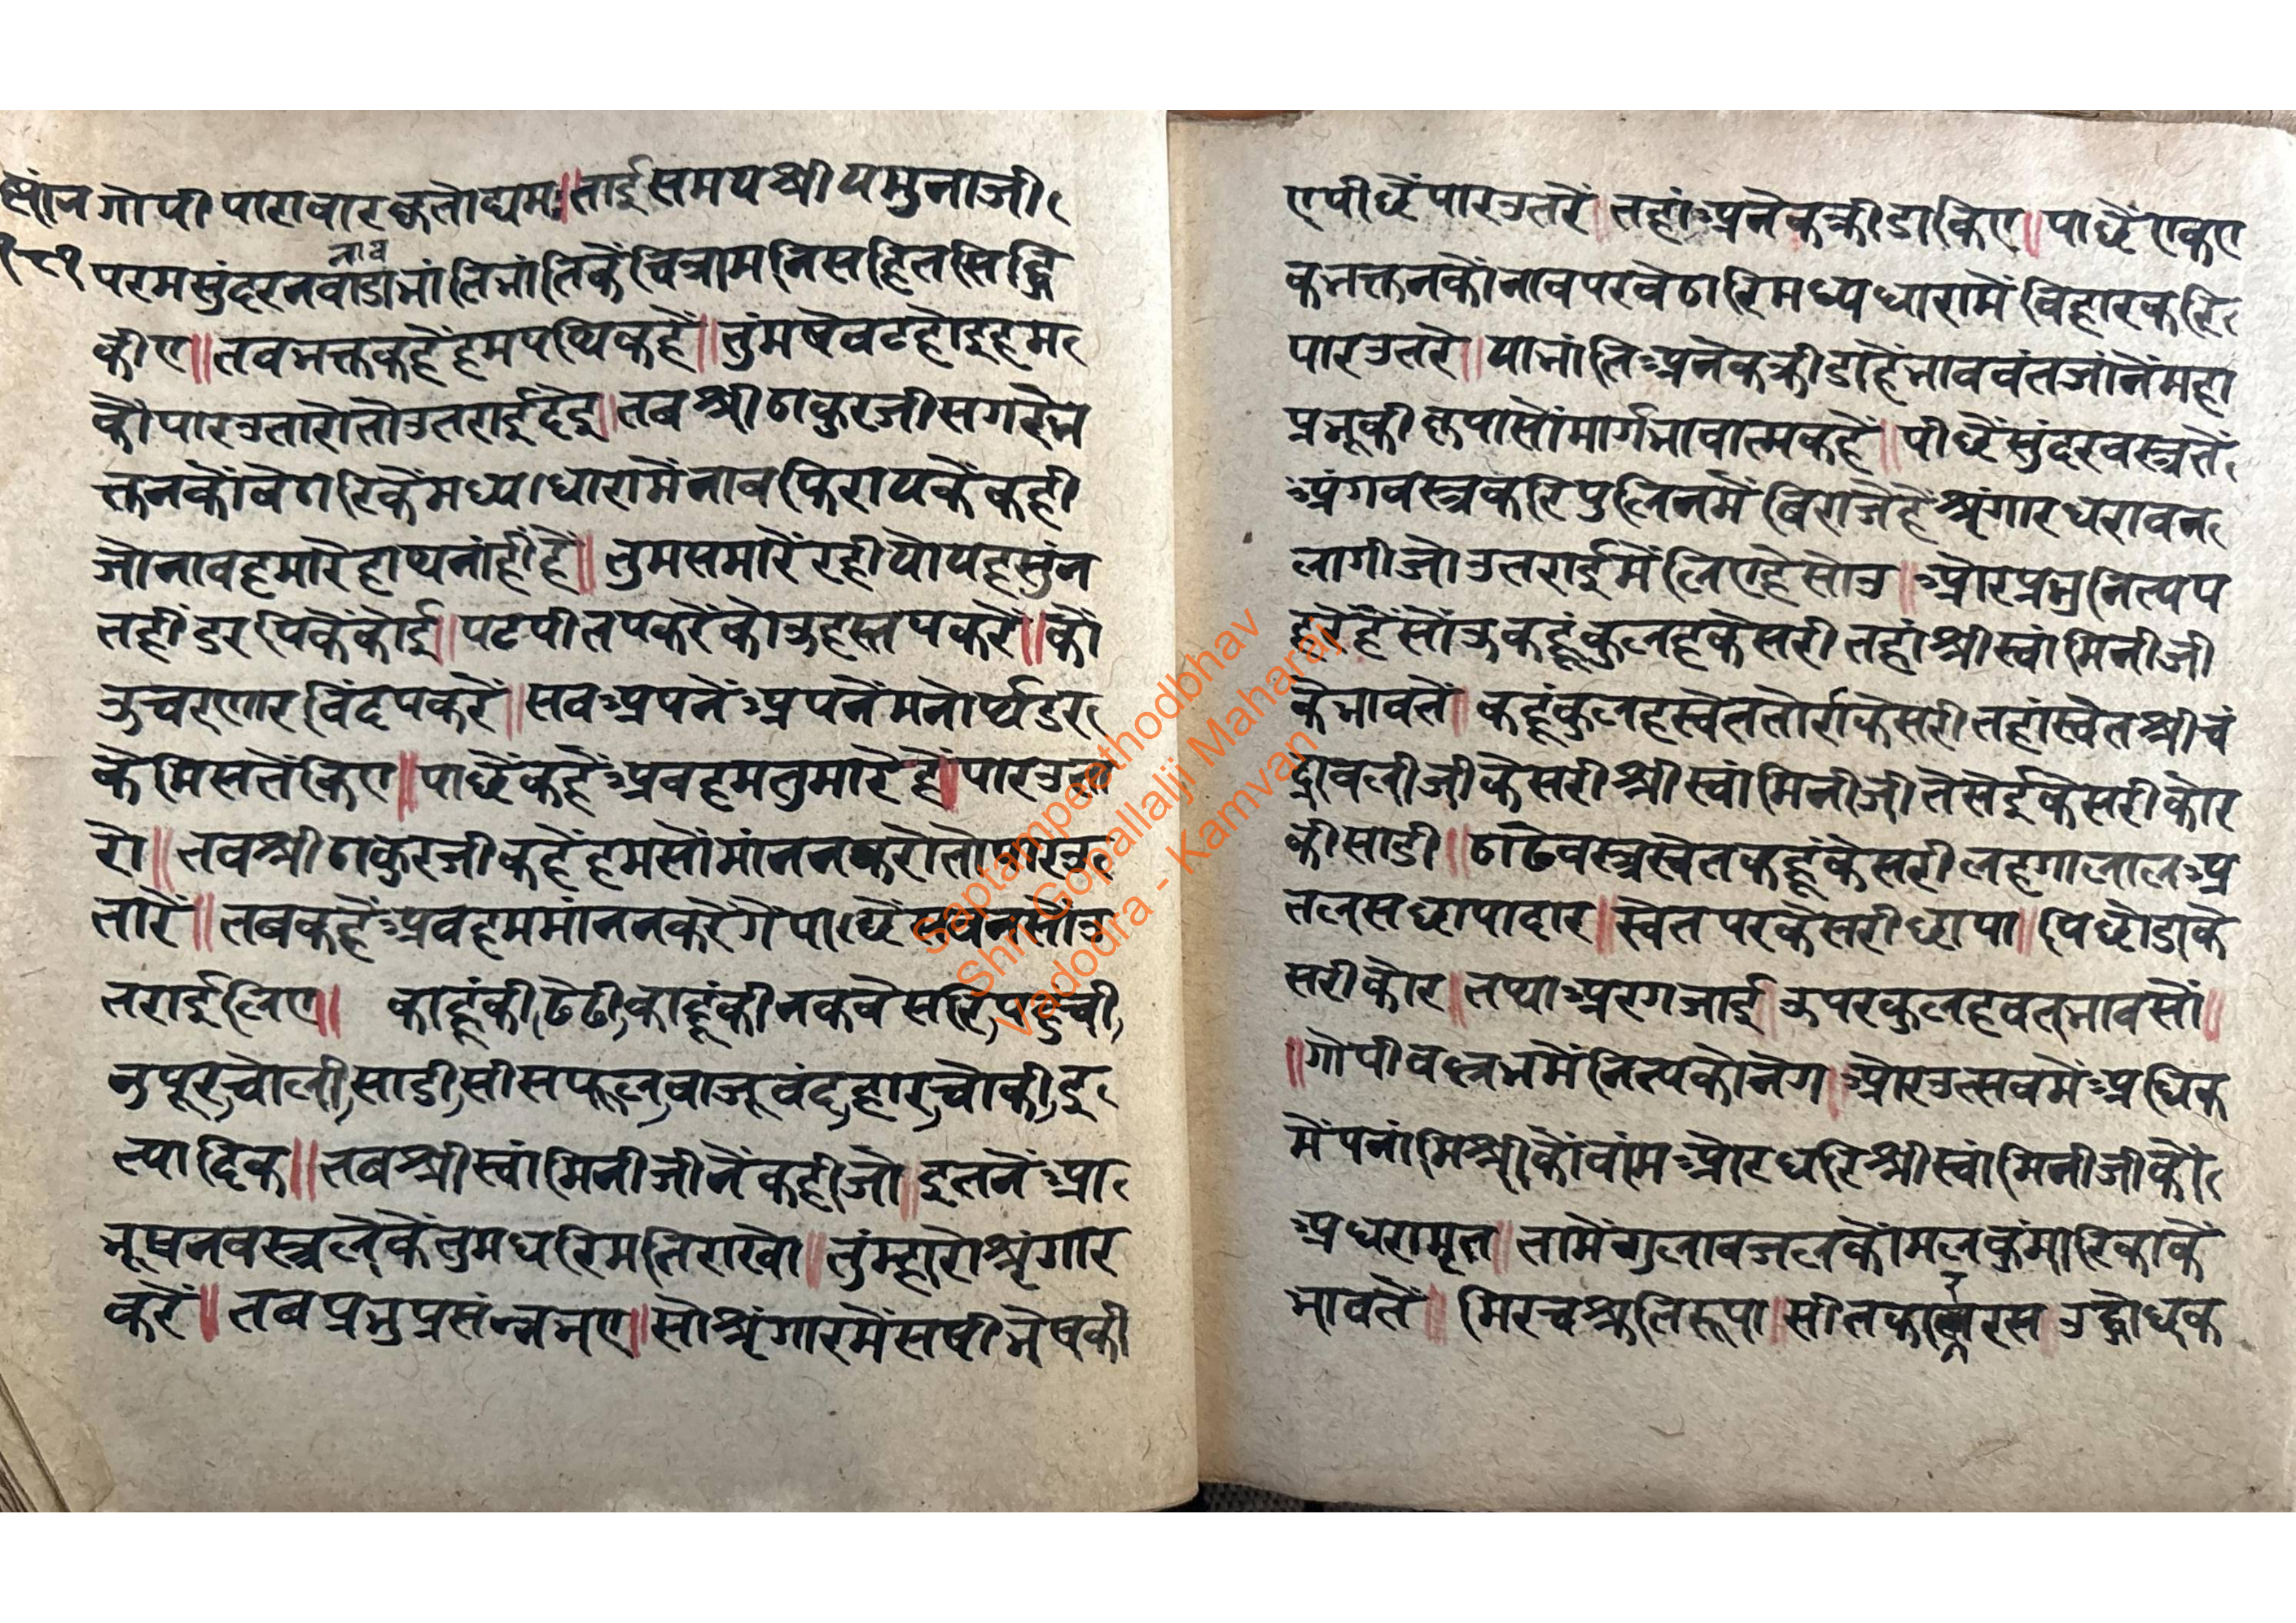 गोपी पारावार कृतोद्यमः॥ ताई समय श्री यमुनाजी
परमसुंदर नवाडा नाव भांति भांति कें चित्राम निसहित सिद्धि
कीए॥ तव भक्त कहैं हम पथिक हैं॥ तुंम षेवट होइ हम
कौ पार उतारो तौ उतराई देइ॥ तब श्री ठाकुरजी सगरे भ
क्तन कों बेठारि कें मध्य धारा में नाव फिराय कें कही
जो नाव हमारे हाथ नांहीं हैं॥ तुम समारें रहीयो यह सुंन
तहीं डरपि कें कोई॥ पट पीत पकरें कोऊ हस्त पकरें॥ को
ऊ चरणारविंद पकरें॥ सव अपनें अपनें मनोर्थ डर
के मिस तें किए॥ पाछें कहैं अव हम तुमारे हैं॥ पार उता
रो॥ तव श्री ठाकुरजी कहैं हम सों मांन न करो तो पार उ
तारें॥ तब कहैं अव हम मांन न करेंगे पाछें
तराई लिए॥ काहूं की ढेढी, काहूं की नकवेसरि, पहुची,
नुपूर, चोली, साडी, सीसफूल, वाजूवंद, हार, चोकी, इ
त्यादिक॥ तब श्री स्वांमिनीजी नें कही जो॥ इतनें आ
भूषन वस्त्र लेकें तुम घरि मति राखो॥ तुंम्हारो श्रृंगार
करें॥ तब प्रभु प्रसंन्न भए॥ सो श्रृंगार में सषी भेष की
ए पीछें पार उतरें॥ तहां अनेक क्रीडा किए॥ पाछें एक ए
क भक्तन कों नाव पर वेठारि मध्य धारा में विहार करि
पार उतरे॥ या भांति अनेक क्रीडा हें भाववंत जांनें महा
प्रभू की कृपा सों मार्ग भावात्मक हैं॥ पीछें सुंदर वस्त्र तें
अंग वस्त्र करि पुलिन में बिराजे हें श्रृंगार धरावन
लागी जो उतराई में लिए हे सोउ॥ और प्रभु नित्य प
हरे हैं सोंऊ कहूं कुलह केसरी तहां श्री स्वांमिनीजी
के भाव तें॥ कहूं कुलह स्वेत तोर्रा केसरी तहां स्वेत श्री चं
द्रावलीजी केसरी श्री स्वांमिनीजी तेसेई केसरी कोर
की साडी॥ ठाढे वस्त्र स्वेत कहूं केसरी लहगा लाल अ
तलस छापादार॥ स्वेत पर केसरी छापा॥ पिछोडा के
सरी कोर॥ तथा अरगजाई॥ ऊपर कुलहवत् भाव सों॥
॥गोपीवल्लभ में नित्य को नेग॥ और उत्सव में अधिक
में पनां मिश्री कों वांम ओर धरि श्री स्वांमिनीजी कों
अधरामृत॥ तामें गुलाव जल कोंमल कुंमारिका कें
भाव तें॥ मिरच श्रुतिरूपा॥ रस उद्बोधक